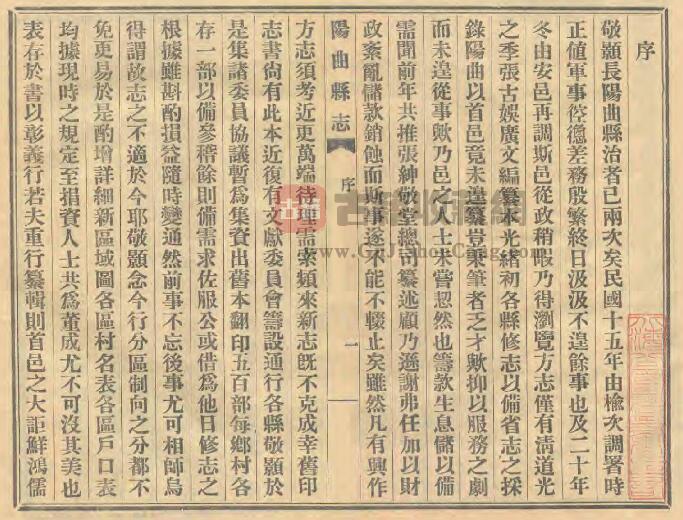 序
敬顥長陽曲縣治者已兩次矣民國十五年由榆次調署時
正値軍事倥傯差務殷繁終日汲汲不遑餘事也及二十年
冬由安邑再調斯邑從政稍暇乃得瀏覽方志僅有淸道光
之季張古娛廣文編纂本光緖初各縣修志以備省志之採
錄陽曲以首邑竟未遑纂豈秉筆者乏才歟抑以服務之劇
而未遑從事歟乃邑之人士未嘗恝然也籌款生息儲以備
需聞前年共推張紳敬堂總司纂述顧乃遜謝弗任加以財
政紊亂儲款銷蝕而斯事遂不能不輟止矣雖然凡有興作
陽曲縣志
序
一
方志須考近更萬端待理需索頻來新志旣不克成幸舊印
志書尙有此本近復有文獻委員會籌設通行各縣敬顥於
是集諸委員協議暫爲集資出舊本翻印五百部每鄉村各
存一部以備參稽餘則備需求佐服公或借爲他日修志之
根據雖斟酌損益隨時變通然前事不忘後事尤可相師烏
得謂故志之不適於今耶敬顥念今行分區制向之分都不
免更易於是酌增詳細新區域圖各區村名表各區戶口表
均據現時之規定至捐資人士共爲董成尤不可沒其美也
表存於書以彰義行若夫重行纂輯則首邑之大詎鮮鴻儒
古籍收藏網
GuJiShouCang.Com